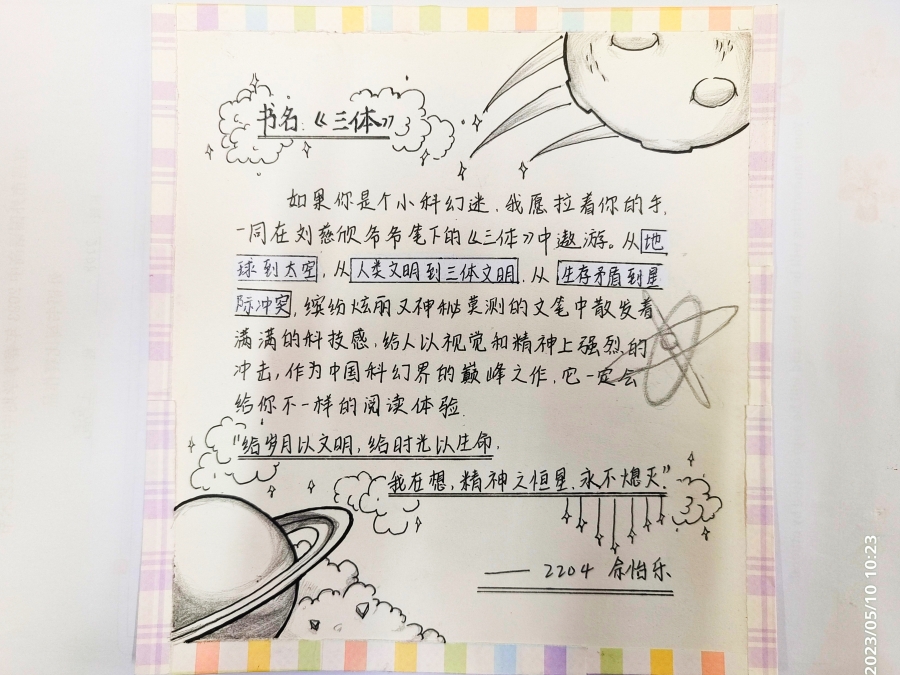 书名:《三体》
如果你是个小科幻迷,我愿拉着你的手,
一同在刘慈欣爷爷笔下的《三体》中遨游。从地
球到太空,从人类文明到三体文明,从生存矛盾到星
际冲突,缤纷炫丽又神秘莫测的文笔中散发着
满满的科技感,给人以视觉和精神上强烈的
冲击,作为中国科幻界的巅峰之作,它一定会
给你不一样的阅读体验.
"给岁月以文明,给时光以生命,
我在想,精神之恒星,永不熄灭."
—— 2204 余怡乐
2023/05/10 10:23